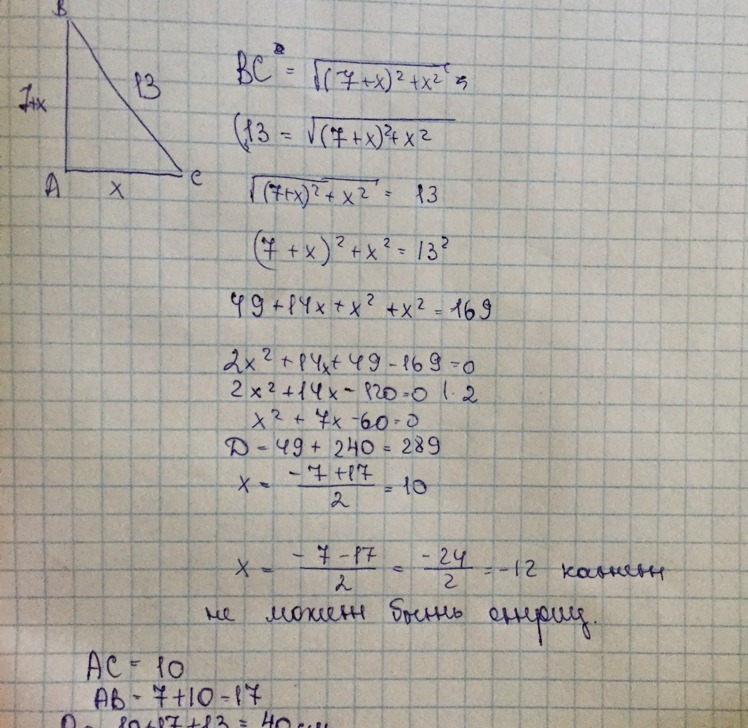 B
7+x
13
A
x
C
BC = √(7+x)² + x²
(13 = √(7+x)² + x²
√(7+x)² + x² = 13
(7 + x)² + x² = 13²
49 + 14x + x² + x² = 169
2x² + 14x + 49 - 169 = 0
2x² + 14x - 120 = 0 | : 2
x² + 7x - 60 = 0
D = 49 + 240 = 289
x = (-7 + 17)/2 = 10
x = (-7 - 17)/2 = -24/2 = -12 катет
не может быть отриц.
AC = 10
AB = 7 + 10 = 17
P = 10 + 17 + 13 = 40 см